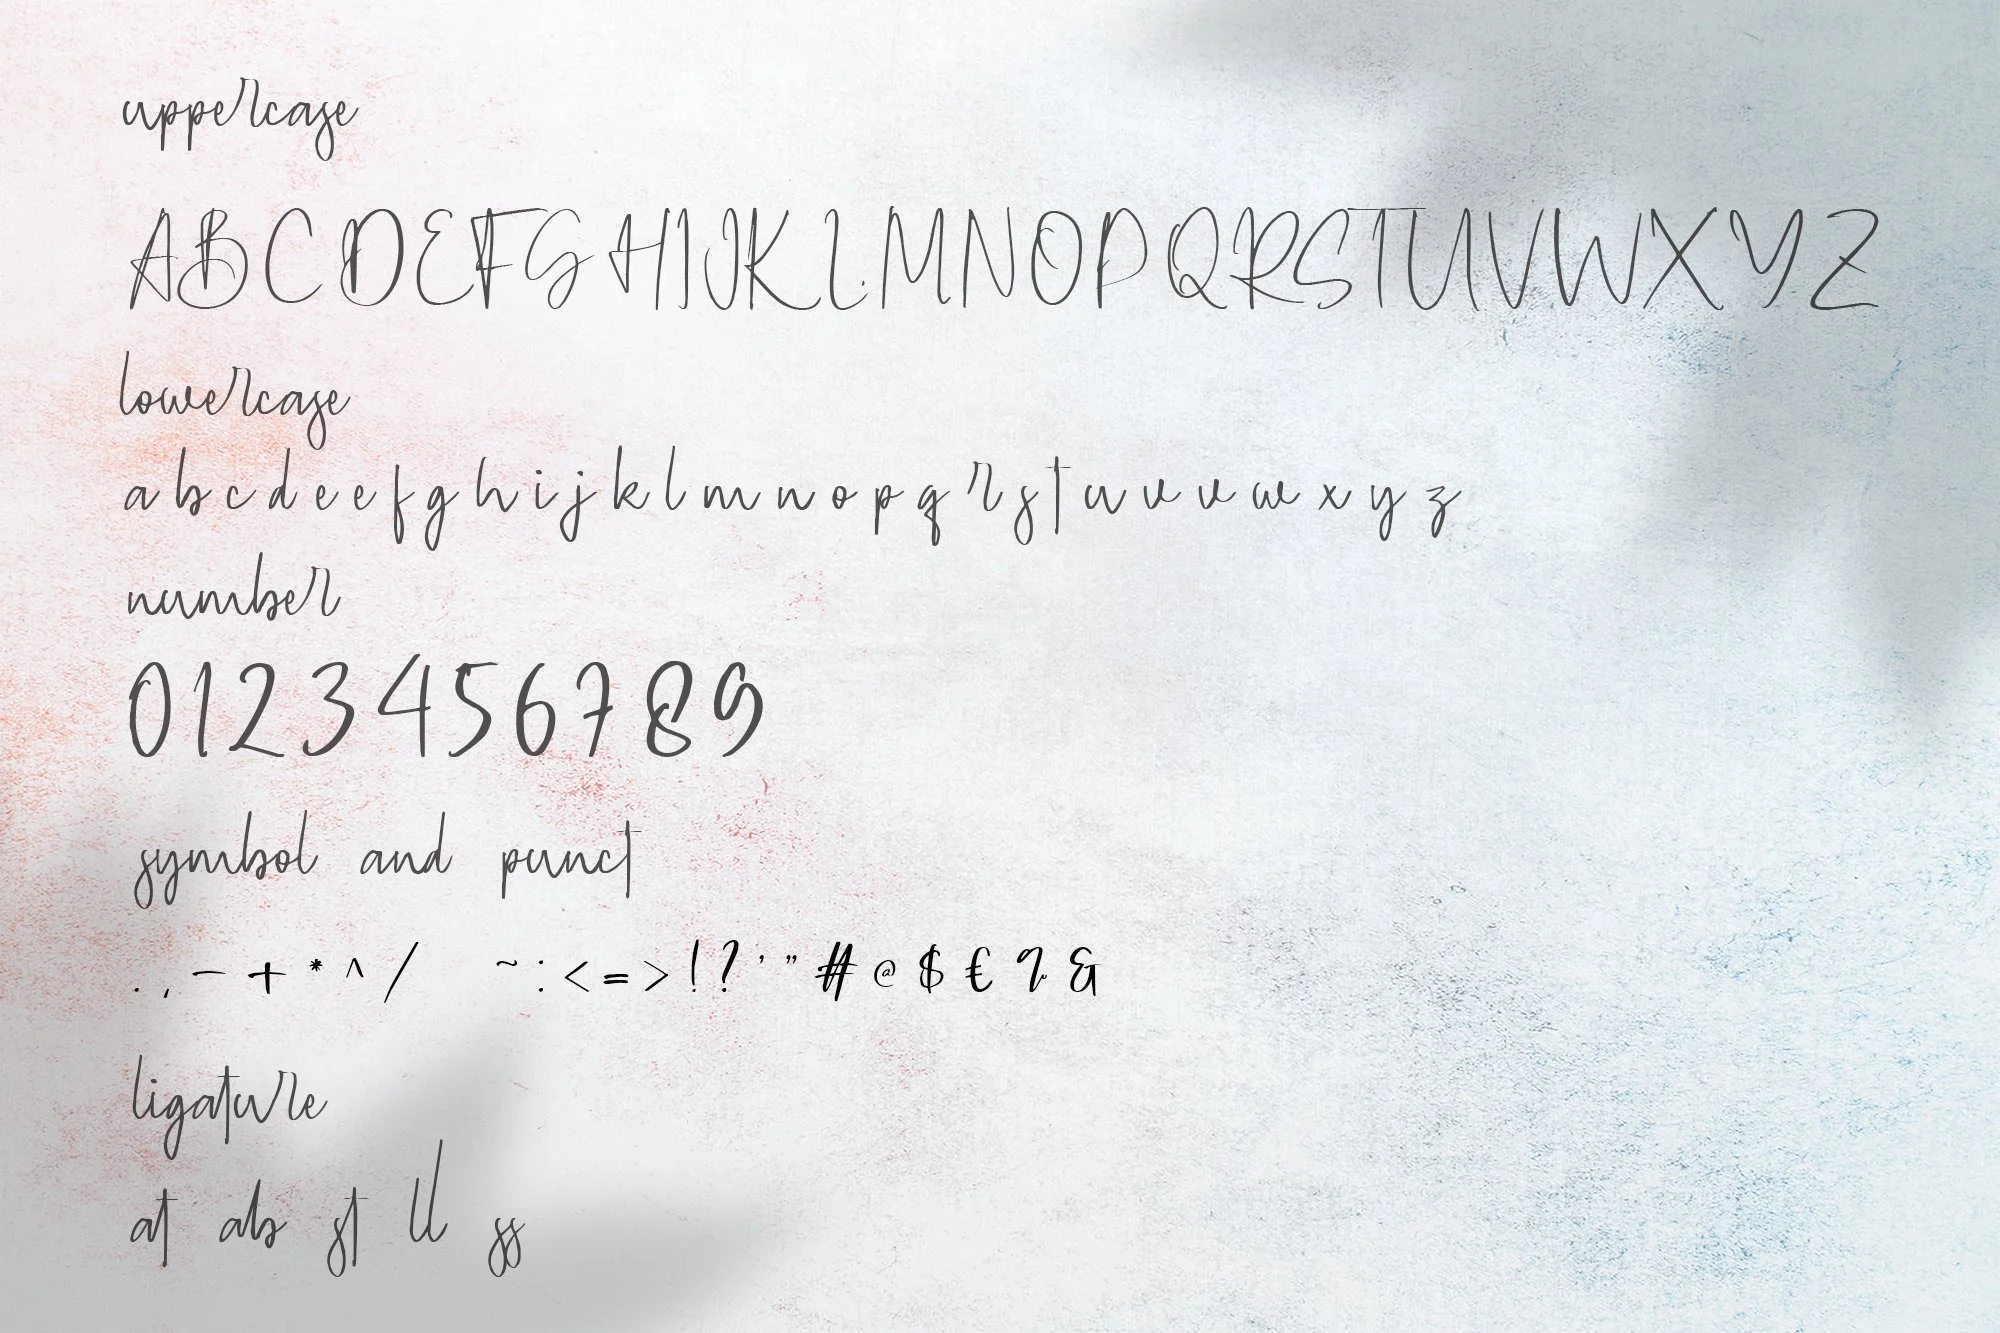 uppercase
ABCDEFGHIJKLMNOPQRSTUVWXYZ
lowercase
a b c d e e f g h i j k l m n o p q r s t u v v w x y z
number
0123456789
symbol and punct
. , - + * ^ / ~ : < = > ! ? ' " # @ $ € % &
ligature
at ab st ll ss